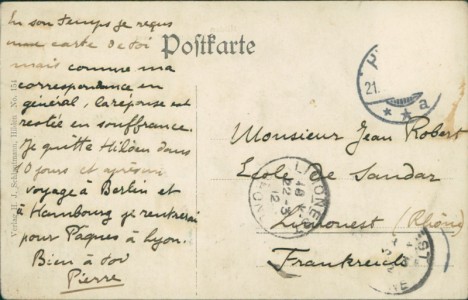 En son temps je reçus
une carte de toi
mais comme ma
correspondance en
général, la réponse est
restée en souffrance.
Je quitte Hilden dans
jours et après un
voyage à Berlin et
Hambourg je rentrerai
pour Pâques à Lyon.
Bien à toi
Pierre
Postkarte
Verlag H. J. Hilden. No. 151
21.
* * a
Monsieur Jean Robert
Ecole de Sandar
Limonest (Rhône)
Frankreich
LIMONEST
22-3
12
RHONE